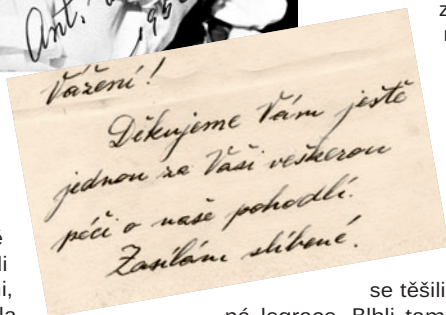 Ant.
195
Vážení!
Děkujeme Vám ještě
jednou za Vaši veškerou
péči o naše pohodlí.
Zasílám slíbené.
se těšili
ná legrace. Blbli tam